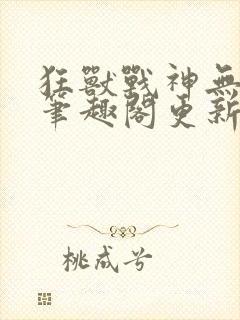 狂獸戰神無
筆趣閣更新
桃成兮